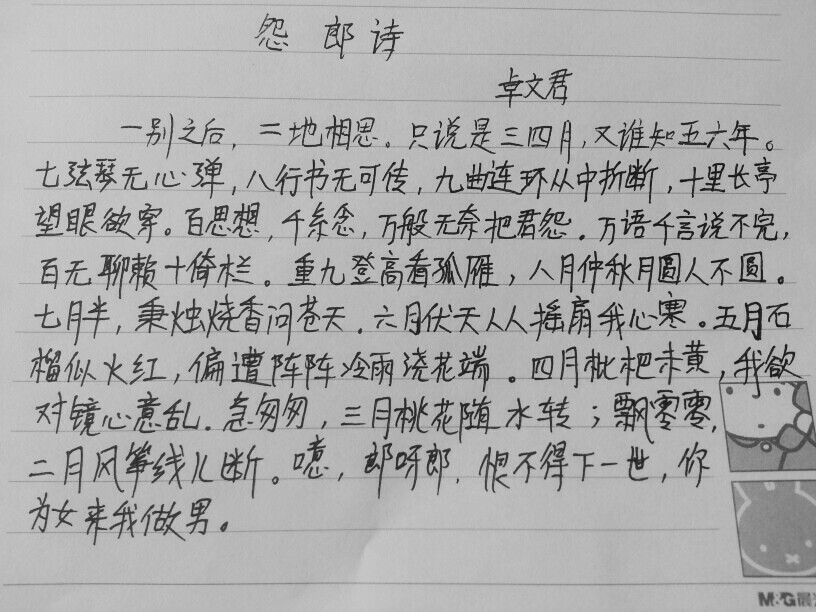 怨郎诗
卓文君
一别之后，二地相思。只说是三四月，又谁知五六年。
七弦琴无心弹，八行书无可传，九曲连环从中折断，十里长亭
望眼欲穿。百思想，千系念，万般无奈把君怨。万语千言说不完，
百无聊赖十倚栏。重九登高看孤雁，八月仲秋月圆人不圆。
七月半，秉烛烧香问苍天，六月伏天人人摇扇我心寒。五月石
榴似火红，偏遭阵阵冷雨浇花端。四月枇杷未黄，我欲
对镜心意乱。急匆匆，三月桃花随水转；飘零零，
二月风筝线儿断。噫，郎呀郎，恨不得下一世，你
为女来我做男。
M&G晨